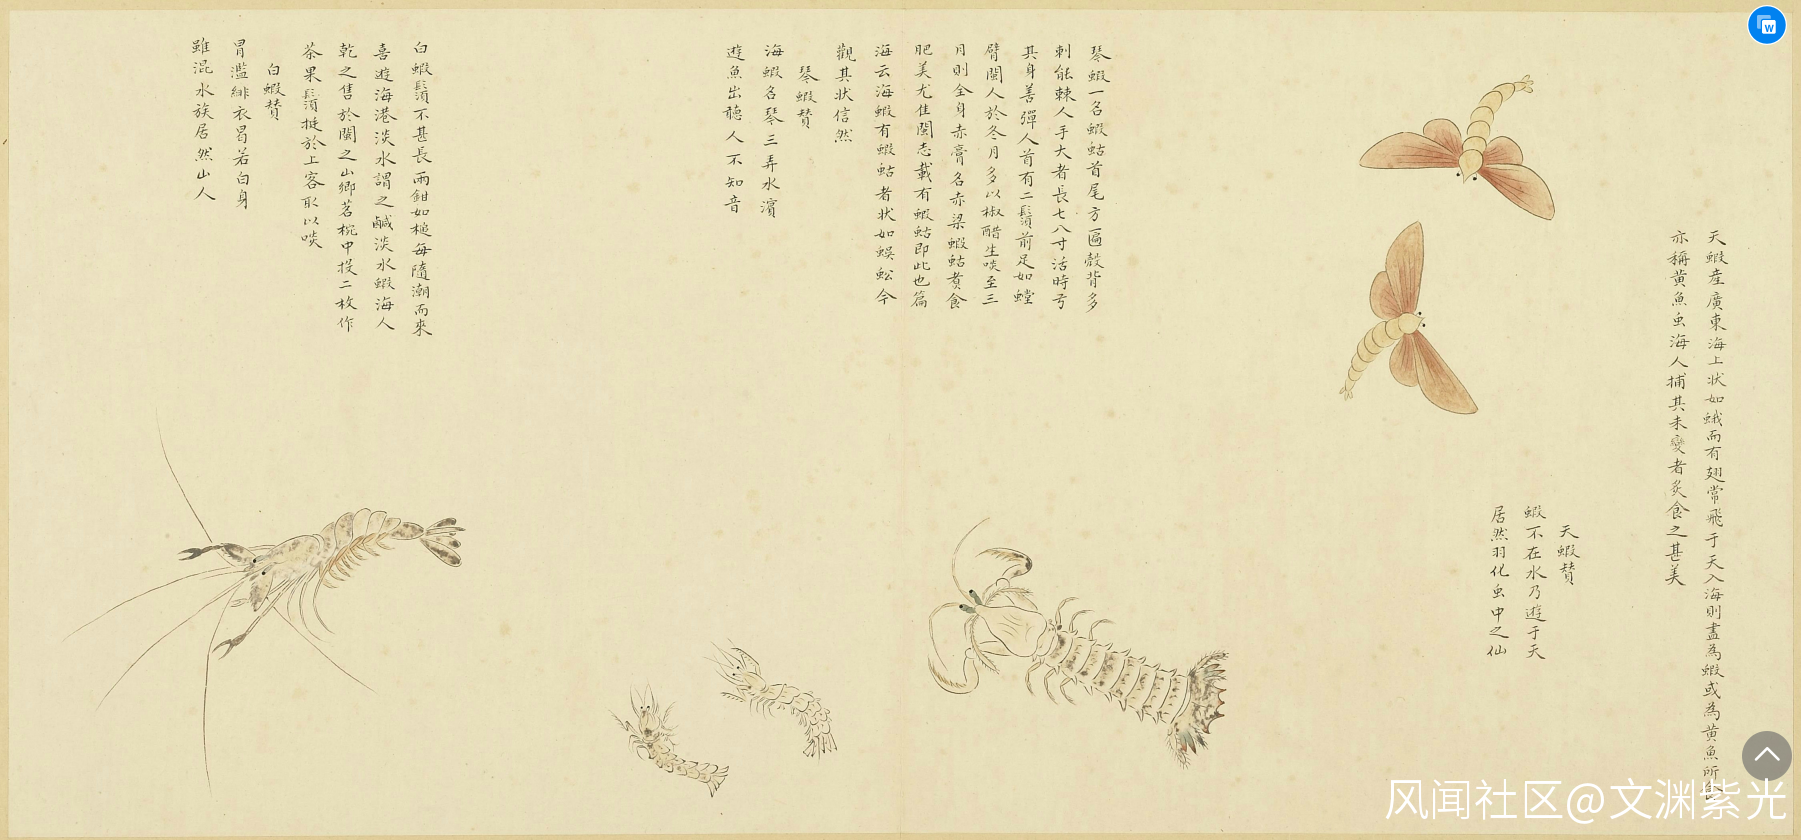 天蝦産廣東海上狀如蛾而有翅常飛于天入海則盡為蝦或為黄魚所食
亦稱黄魚虫海人捕其未變者炙食之甚美
天蝦賛
蝦不在水乃遊于天
居然羽化虫中之仙
琴蝦一名蝦蛄首尾方匾殼背多
刺能棘人手大者長七八寸活時弓
其身善彈人首有二鬚前足如螳
臂閩人於冬月多以椒醋生啖至三
月則全身赤膏名赤梁蝦蛄煑食
肥美尤佳閩志載有蝦蛄即此也篇
海云海蝦有蝦蛄者狀如蜈蚣今
觀其狀信然
琴蝦賛
海蝦名琴三弄水濱
遊魚出聽人不知音
白蝦鬚不甚長兩鉗如槌每隨潮而來
喜遊海港淡水謂之鹹淡水蝦海人
乾之售於閩之山鄉茗椀中投二枚作
茶果鬚挺於上客取以啖
白蝦賛
冒濫緋衣曷若白身
雖混水族居然山人
風闻社区@文渊紫光